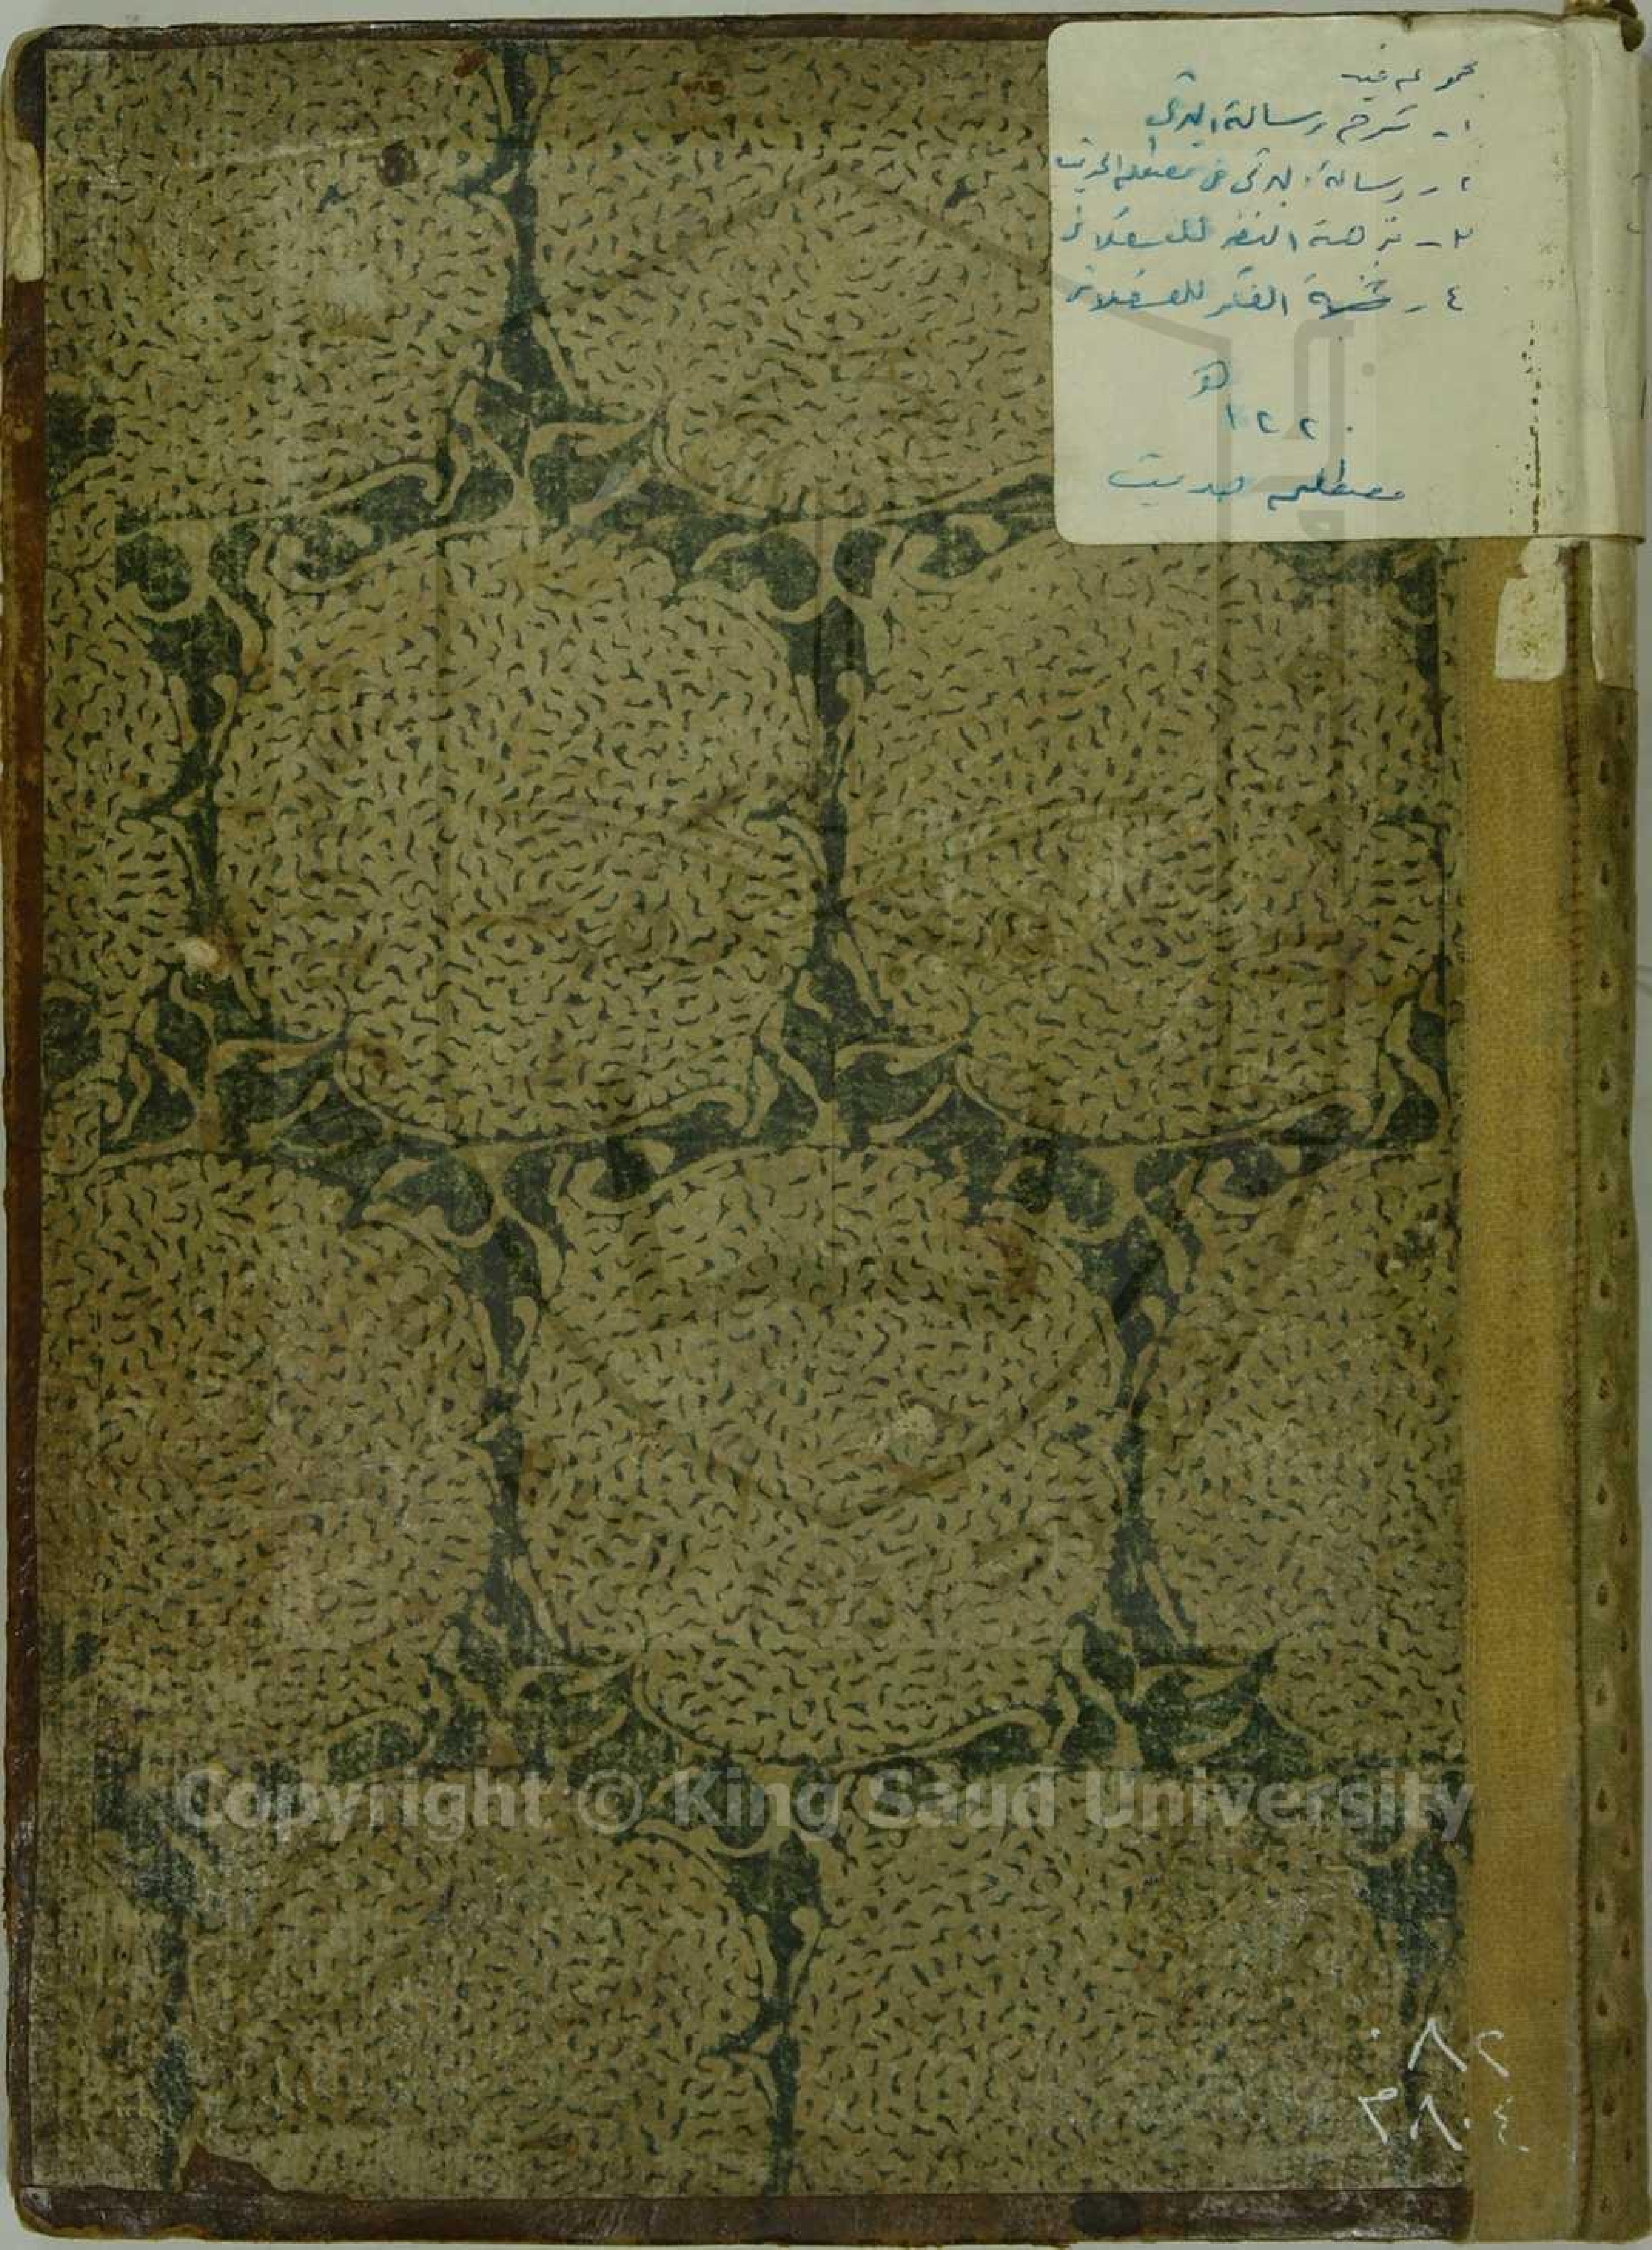 مجموعه فيه
١- شرح رسالة البركوي
٢- رسالة البركوي في مصطلح الحديث
٣- نزهة النظر للعسقلاني
٤- نخبة الفكر للعسقلاني
١٢٢٠
هـ
مصطلح حديث
Copyright © King Saud University